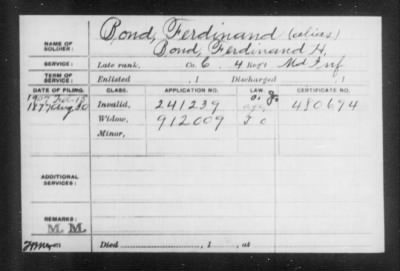 Bond, Ferdinand (alias)
NAME OF SOLDIER: Bond, Ferdinand H.
SERVICE: Late rank, Co. C, 4 Reg't Md Inf
TERM OF SERVICE: Enlisted , 1 Discharged , 1
DATE OF FILING. CLASS. APPLICATION NO. LAW. CERTIFICATE NO.
1877 Aug 30 Invalid, 241239 480694
Widow, 912009
Minor,
ADDITIONAL SERVICES:
REMARKS:
M. M.
Died , 1 , at